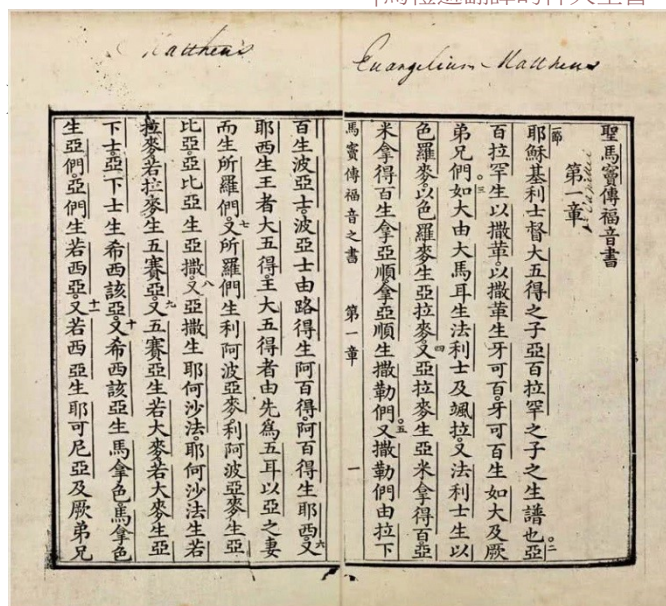 Matthæus
Evangelium Matthæus
聖馬竇傳福音書
第一章
一節耶穌基利士督大五得之子亞百拉罕之子之生譜也。二亞
百拉罕生以撒革。以撒革生牙可百。牙可百生如大及厥
弟兄們。三如大由大馬耳生法利士及颯拉。又法利士生以
色羅麥。以色羅麥生亞拉麥。四又亞拉麥生亞米拿得百亞
米拿得百生拿亞順。拿亞順生撒勒們。五又撒勒們由拉下
馬竇傳福音之書 第一章 一
百生波亞士。波亞士由路得生阿百得。阿百得生耶西。六又
耶西生王者大五得。王大五得者由先為五耳以亞之妻
而生所羅們。七又所羅們生利阿波亞麥利阿波亞麥生亞
比亞。亞比亞生亞撒。八又亞撒生耶何沙法。耶何沙法生若
拉麥。若拉麥生五賽亞。九又五賽亞生若大麥。若大麥生亞
下士。亞下士生希西該亞。十又希西該亞生馬拿色馬拿色
生亞們。亞們生若西亞。十一又若西亞生耶可尼亞及厥弟兄